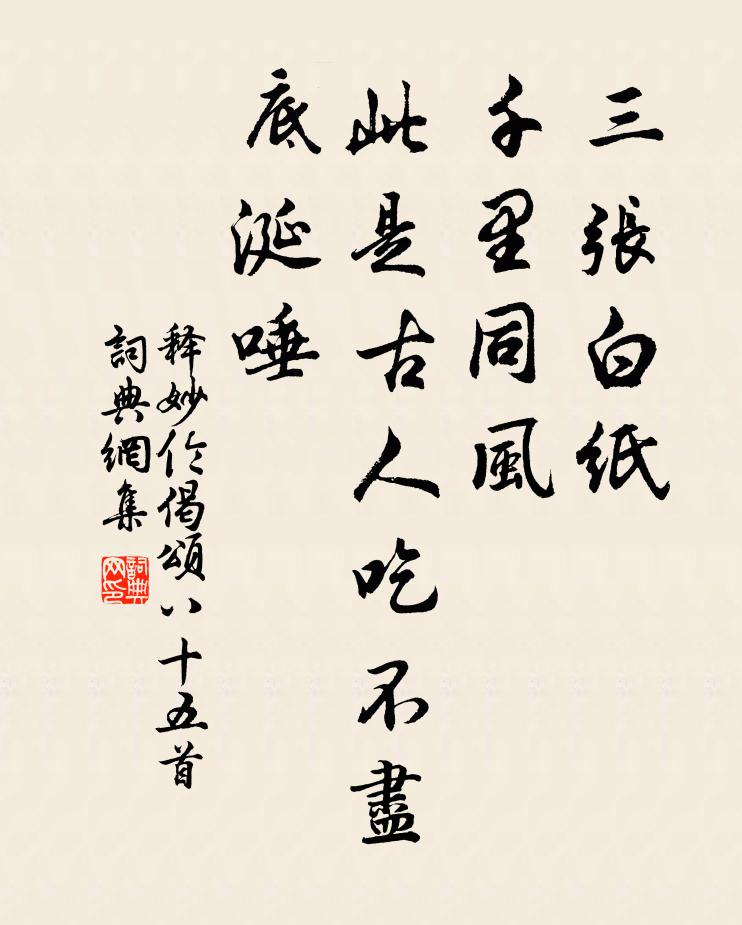 三張白紙
千里同風
此是古人吃不盡
底涎唾
释妙伦偈頌八十五首
詞典網集
詞典网印